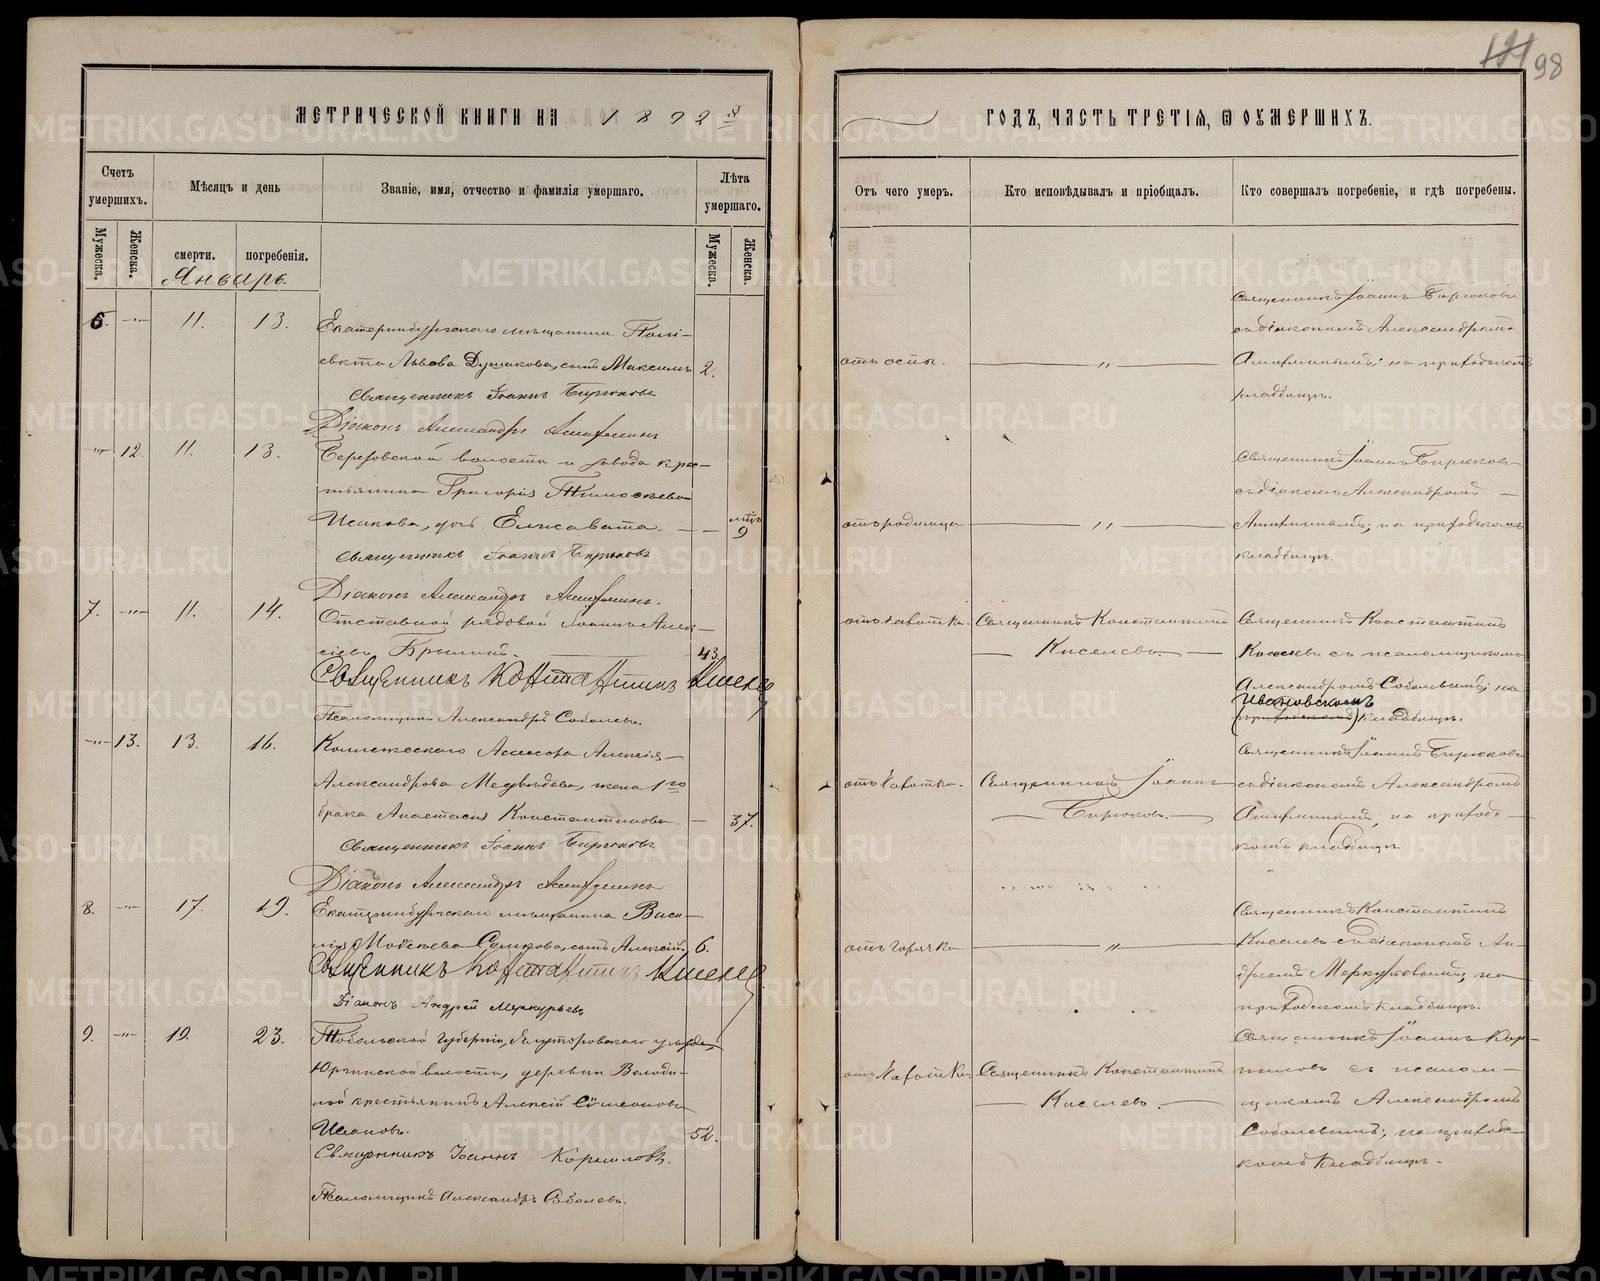 МЕТРИЧЕСКОЙ КНИГИ НА 1892 й
Счетъ умершихъ.
Мѣсяцъ и день
Званіе, имя, отчество и фамилія умершаго.
Лѣта умершаго.
Мужеска.
Женска.
смерти.
погребенія.
Мужеска.
Женска.
Январь.
6. 11. 13. Екатеринбургскаго мѣщанина Полі-
евкта Львова Душакова, сынъ Максимъ 2.
Священникъ Іоаннъ Бирюковъ
Діаконъ Александръ
12. 11. 13. Березовской волости и завода крес-
тьянина Григорія
Исакова, дочь Елисавета. 9
Священникъ Іоаннъ Бирюковъ
Діаконъ Александръ
7. 11. 14. Отставной рядовой Іоаннъ Алек-
сіевъ 43.
Священникъ Константинъ Киселевъ
Псаломщикъ Александръ Соболевъ.
13. 13. 16. Коллежскаго Асессора Алексія
Александрова Медвѣдева, жена 1 го
брака Анастасія Константинова. 37.
Священникъ Іоаннъ Бирюковъ
Діаконъ Александръ
8. 17. 19. Екатеринбургскаго мѣщанина Васи-
лія Моисеева сынъ Алексій 6.
Священникъ Константинъ Киселевъ
Діаконъ Андрей Меркурьевъ
9. 19. 23. Тобольской губерніи, Ялуторовскаго уѣзда,
Юргинской волости, деревни Володи-
ной крестьянинъ Алексій Сѵмеоновъ
52.
Священникъ Іоаннъ Корниловъ.
Псаломщикъ Александръ Соболевъ.
98
ГОДЪ, ЧАСТЬ ТРЕТІЯ, Ѿ ОУМЕРШИХЪ.
Отъ чего умеръ.
Кто исповѣдывалъ и пріобщалъ.
Кто совершалъ погребеніе, и гдѣ погребены.
Священникъ Іоаннъ Бирюковъ
съ діакономъ Александромъ
отъ оспы. на приходскомъ
кладбищѣ.
Священникъ Іоаннъ Бирюковъ
съ діакономъ Александромъ
отъ родимца на приходскомъ
кладбищѣ.
отъ чахотки. Священникъ Константинъ Священникъ Константинъ
Киселевъ. Киселевъ съ псаломщикомъ
Александромъ Соболевымъ; на
Ивановскомъ
(приходскомъ) кладбищѣ.
Священникъ Іоаннъ Бирюковъ
отъ чахотки. Священникъ Іоаннъ съ діакономъ Александромъ
Бирюковъ. на приходс-
комъ кладбищѣ.
Священникъ Константинъ
отъ горячки Киселевъ съ діакономъ Ан-
дреемъ Меркурьевымъ; на
приходскомъ кладбищѣ.
Священникъ Іоаннъ Кор-
отъ чахотки. Священникъ Константинъ ниловъ съ псалом-
Киселевъ. щикомъ Александромъ
Соболевымъ; на приходс-
комъ кладбищѣ.
METRIKI.GASO-URAL.RU